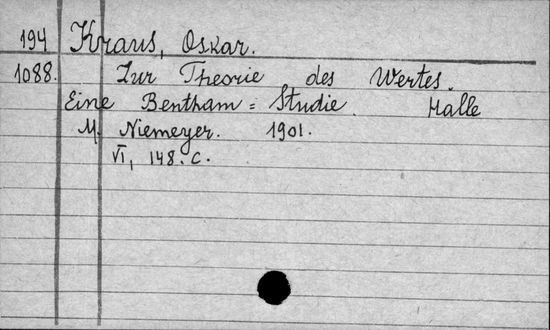 194 Kraus, Oskar.
1088. Zur Theorie des Wertes.
Eine Bentham = Studie. Halle
M. Niemeyer. 1901.
VI, 148. c.